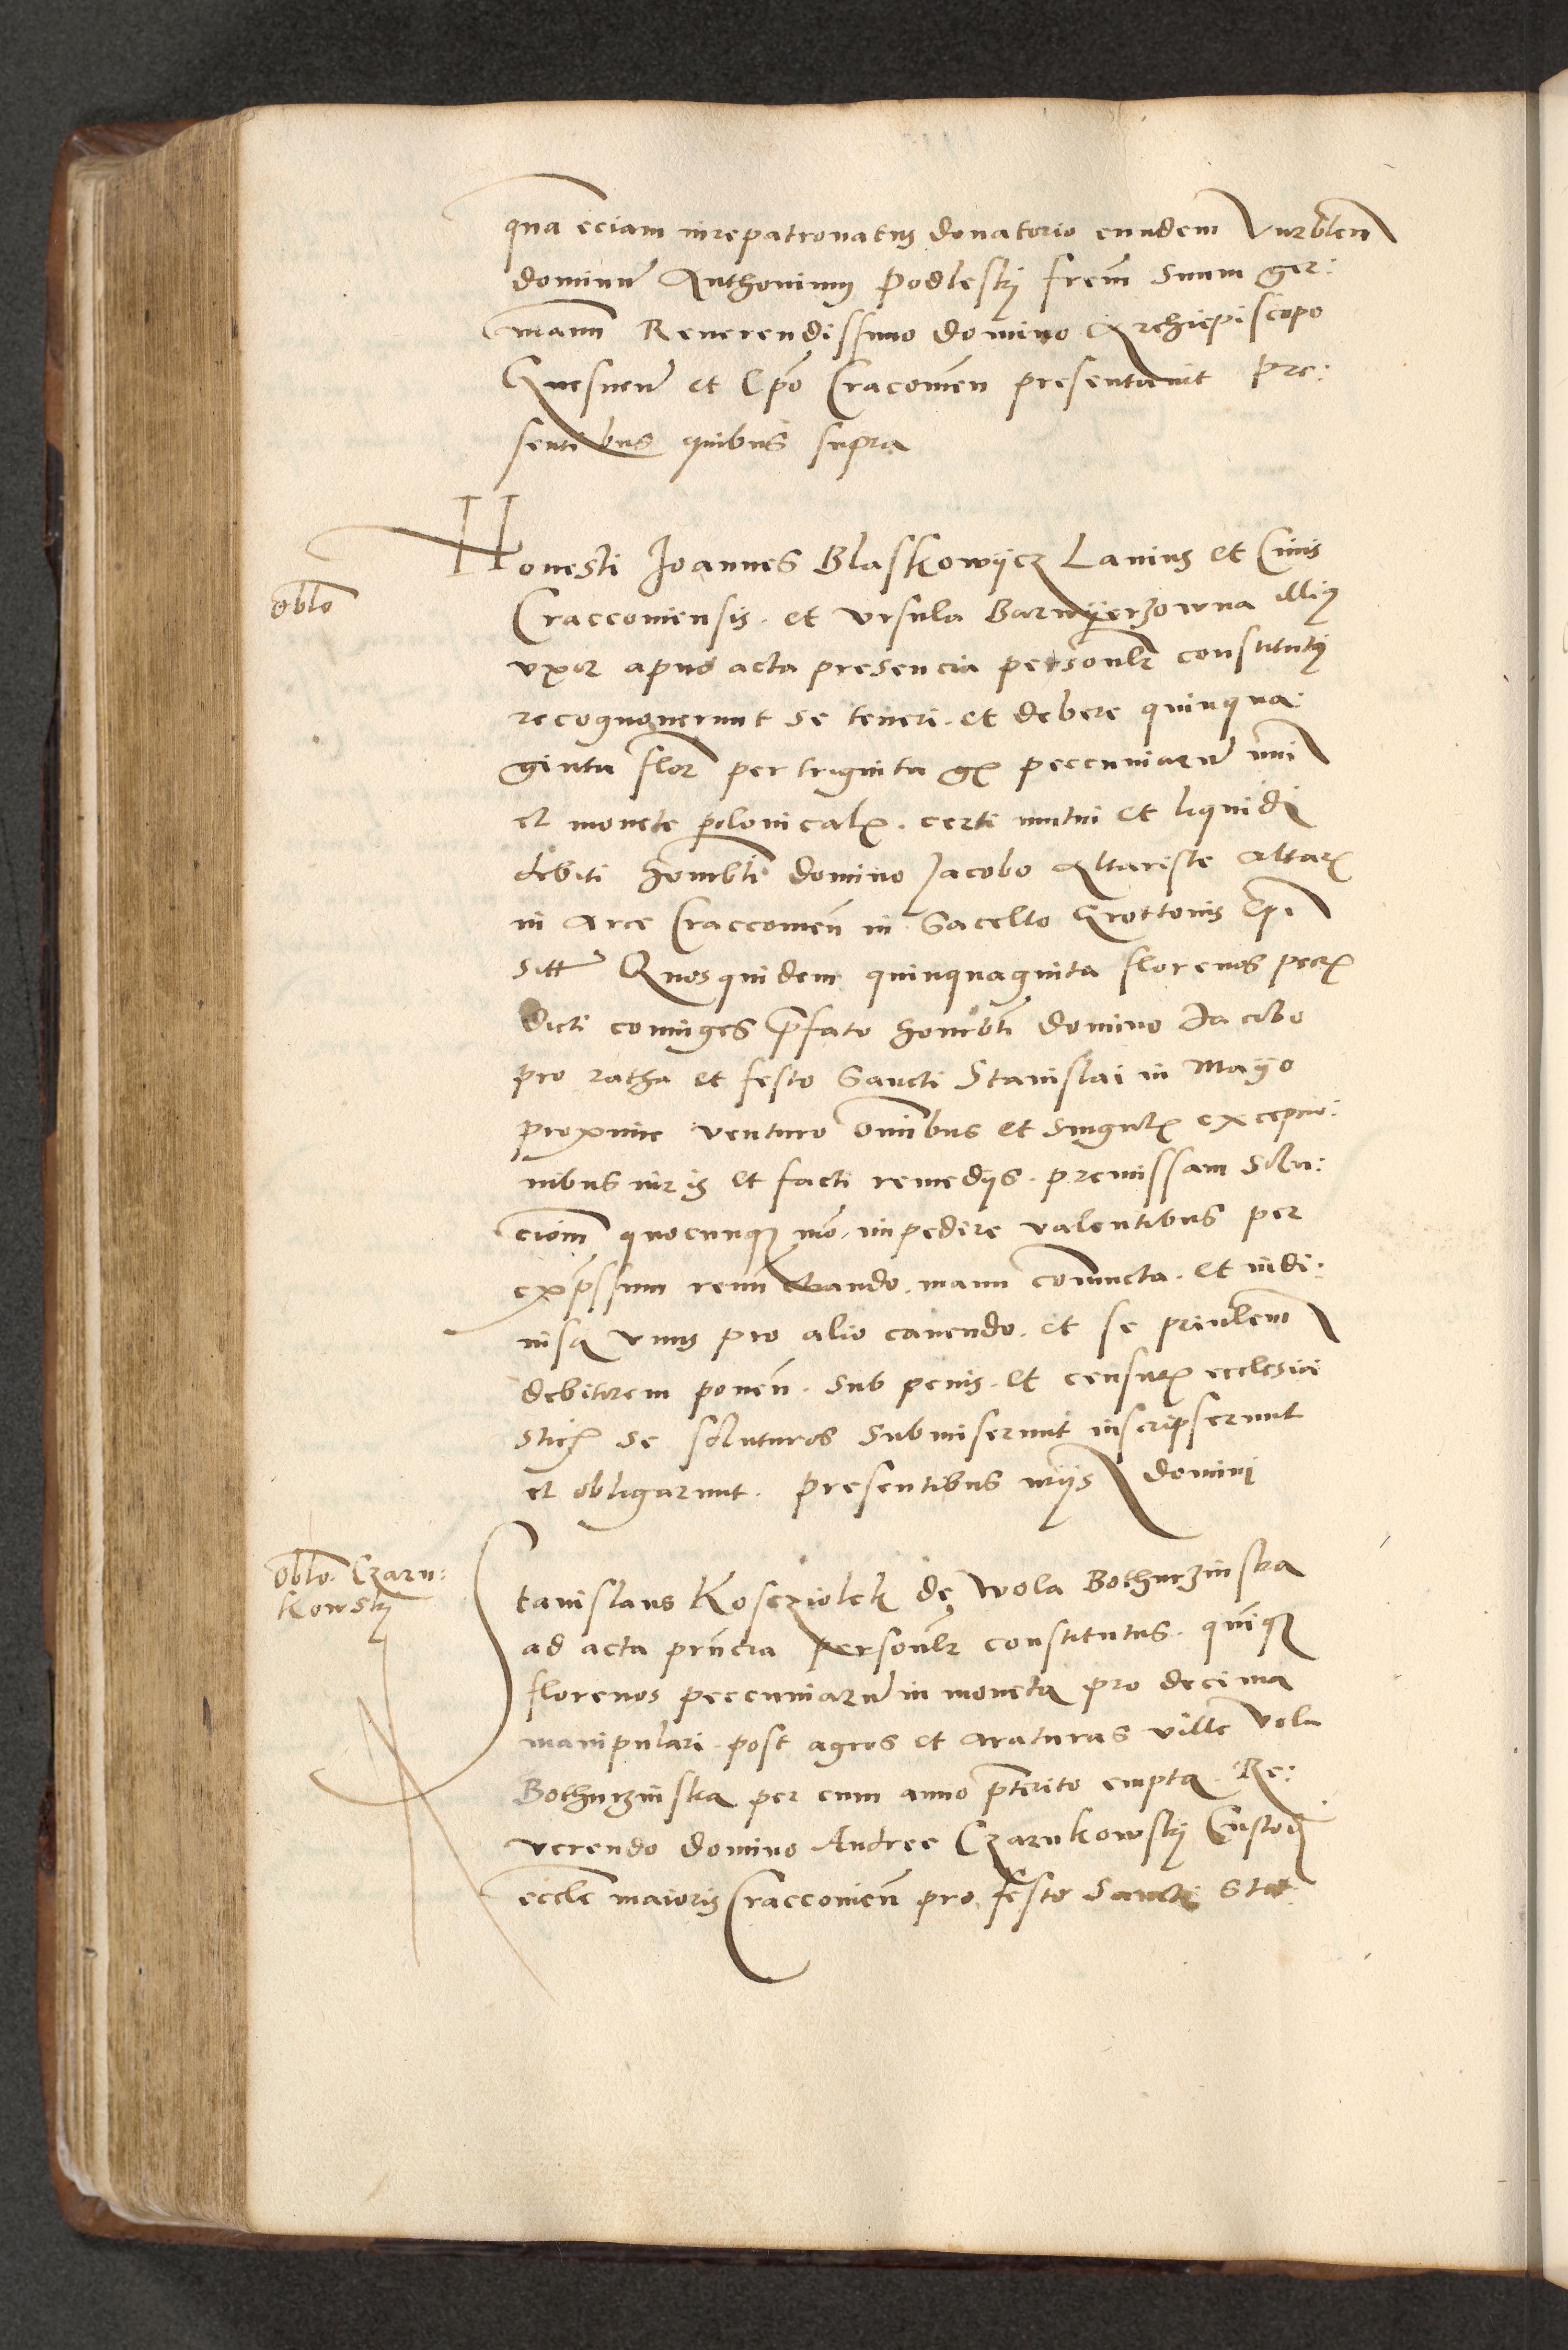 qua eciam iurepatronatus donatorio eundem Vnrblem
dominum Anthonium Podlesky frem Suum ger:
manum Reuerendissimo domino Archiepiscopo
Gnesnen et Epo Cracouien presentauit pre:
sentibus quibus supra
Honesti Joannes Blaskowycz Lanius et Ciuis
oblo
Craccouiensis. et vrsula Barwyerzowna illius
vxor apud acta presencia personlr constituty
recognouerunt se teneri. et debere quinqua:
ginta flor per triginta gr peccuniarum nui
et monete polonicalr. certi mutui et liquidi
debiti honorbli domino Jacobo Altariste Altar
in Arce Craccouien in Sacello Grottonis Epi
sitt Quosquidem quinquaginta florenos pecr
dicti coniuges prfato honorbli domino Jacobo
pro ratha et festo Sancti Stanislai in Mayo
proxime venturo omnibus et singulr excepcio:
nibus iuris et facti remedys. premissam solu:
ciom quocunque mo. impedire valentibus per
exprssum renunctiando. manu coniuncta. et indi:
uisa vnus pro alio cauendo. et se prinlem
debitorem ponen. sub penis. et censur ecclesia
sticr se soluturos submiserunt inscripserunt
et obligarunt. presentibus vtys domini
oblo Czarn:
kowsky
Stanislaus Kosczioleck de wola Bothurzinska
ad acta prncia personlr constitutus. quinque
florenos peccuniarum in moneta pro decima
manipulari. post agros et araturas ville vola
Bothurzinska per eum anno prterito empta. Re:
uerendo domino Andree Czarnkowsky Custodi
eccle maioris Craccouien pro festo Sancti Sta: